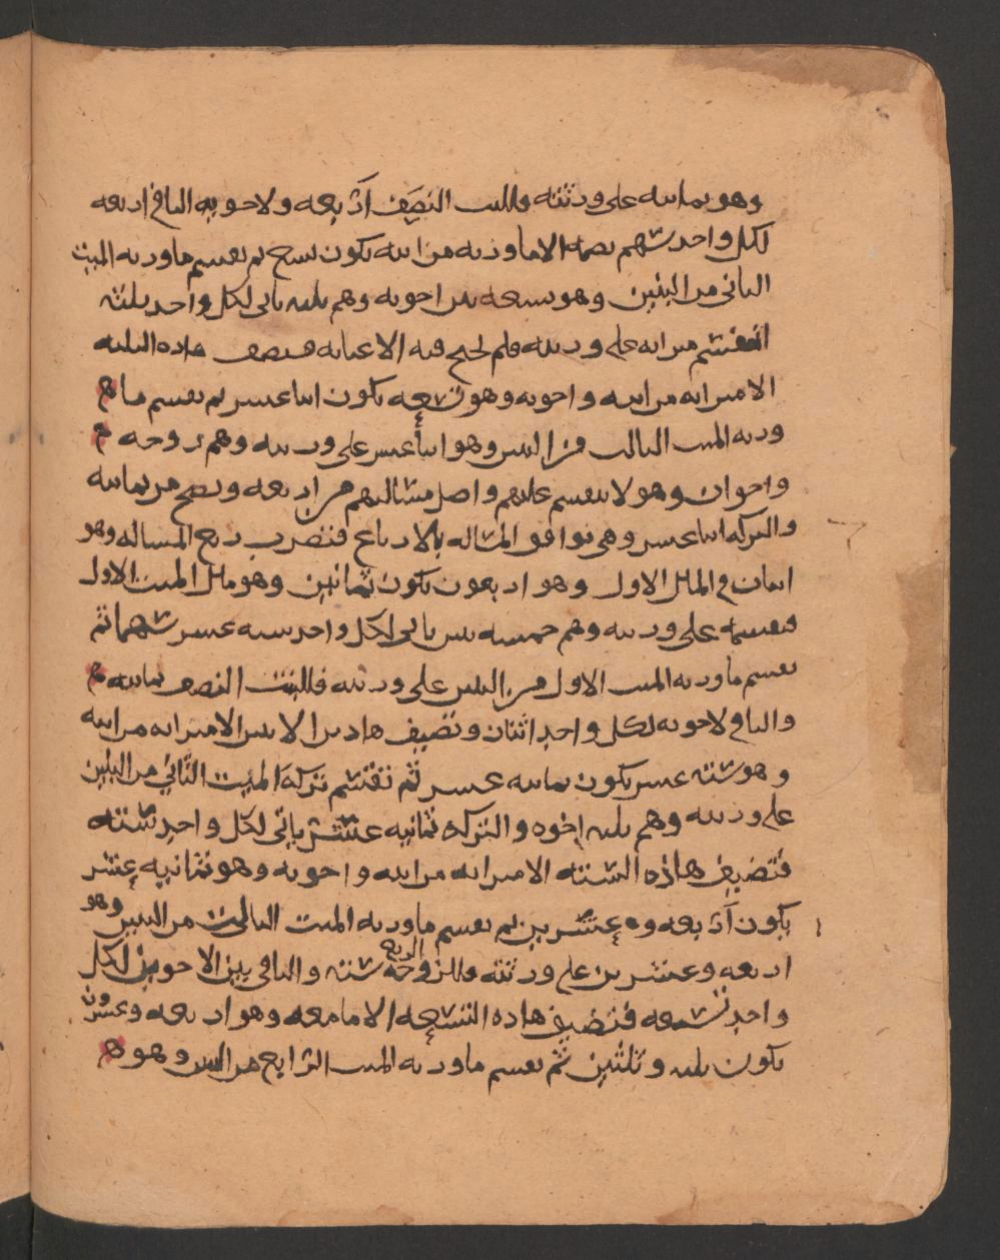 وهو ثمانيه على ورثته فللبنت النصف أربعه ولاخويه الباقي اربعه
لكل واحد سهم نضمه الى ما ورثه من ابيه يكون تسع ثم نقسم ما ورثه الميت
الثاني من البنين وهو تسعه بين اخوته وهم ثلثه ياتي لكل واحد ثلثه
اقتسم ميراثه على ورثته فلم يحتج فيه الا عنايه فنضف هاذه الثلثه
الى ميراثه من ابيه واخوته وهو تسعه يكون اثنا عشر ثم نقسم ما
ورثه الميت الثالث من البنين وهو اثنا عشر على ورثته وهم زوجه
واخوان وهو لا ينقسم عليهم واصل مسالتهم من اربعه وتصح من ثمانيه
والتركه اثنا عشر وهي توافق المساله بالارباع فتضرب ربع المساله وهو
اثنان في المال الاول وهو اربعون يكون ثمانين وهو مال الميت الاول
فنقسمه على ورثته وهم خمسه بنين ياتي لكل واحد سته عشر سهما ثم
نقسم ما ورثه الميت الاول من البنين على ورثته فللبنت النصف ثمانيه
والباقي لاخوته لكل واحد اثنان ونضيف هاذين الاثنين الى ميراثه من ابيه
وهو سته عشر يكون ثمانيه عشر ثم نقتسم تركه الميت الثاني من البنين
على ورثته وهم ثلثه إخوه والتركه ثمانيه عشر ياتي لكل واحد سته
فتضيف هاذه السته الى ميراثه من ابيه واخوته وهو ثمانيه عشر
يكون أربعه وعشرين ثم نقسم ما ورثه الميت الثالث من البنين وهو
اربعه وعشرين على ورثته فللزوجه الربع سته والباقي بين الاخوين لكل
واحد تسعه فتضيف هاذه التسعه الى ما معه وهو اربعه وعشرون
يكون ثلثه وثلثين ثم نقسم ما ورثه الميت الرابع من البنين وهو